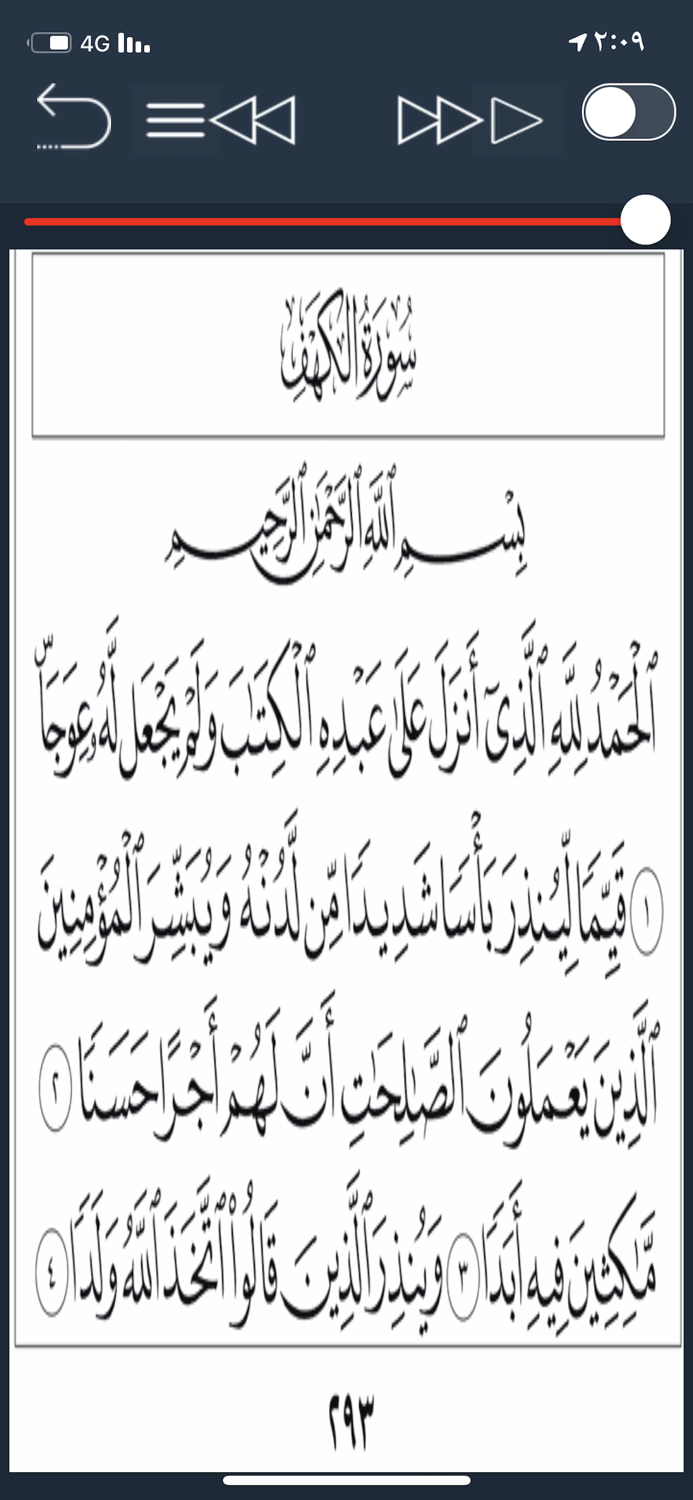 4G ٢:٠٩
سُورَةُ الكَهْفِ
بِسْمِ ٱللَّهِ ٱلرَّحْمَٰنِ ٱلرَّحِيمِ
ٱلْحَمْدُ لِلَّهِ ٱلَّذِىٓ أَنزَلَ عَلَىٰ عَبْدِهِ ٱلْكِتَٰبَ وَلَمْ يَجْعَل لَّهُۥ عِوَجَاۜ
١ قَيِّمًا لِّيُنذِرَ بَأْسًا شَدِيدًا مِّن لَّدُنْهُ وَيُبَشِّرَ ٱلْمُؤْمِنِينَ
ٱلَّذِينَ يَعْمَلُونَ ٱلصَّٰلِحَٰتِ أَنَّ لَهُمْ أَجْرًا حَسَنًا ٢
مَّٰكِثِينَ فِيهِ أَبَدًا ٣ وَيُنذِرَ ٱلَّذِينَ قَالُوا۟ ٱتَّخَذَ ٱللَّهُ وَلَدًا ٤
٢٩٣